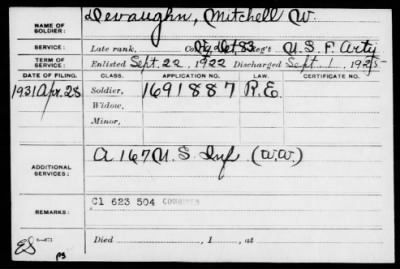 NAME OF SOLDIER: Devaughn, Mitchell W.
SERVICE: Late rank, Co. Reg't U.S.F. Arty
TERM OF SERVICE: Enlisted Sept. 22, 1922 Discharged Sept. 1, 1925
DATE OF FILING. CLASS. APPLICATION NO. LAW. CERTIFICATE NO.
1931 Apr. 28 Soldier, 1691887 R.E.
Widow,
Minor,
ADDITIONAL SERVICES: A 167 U.S. Inf (W.W.)
REMARKS: C1 623 504 COMBINED
Died , 1 , at
ES